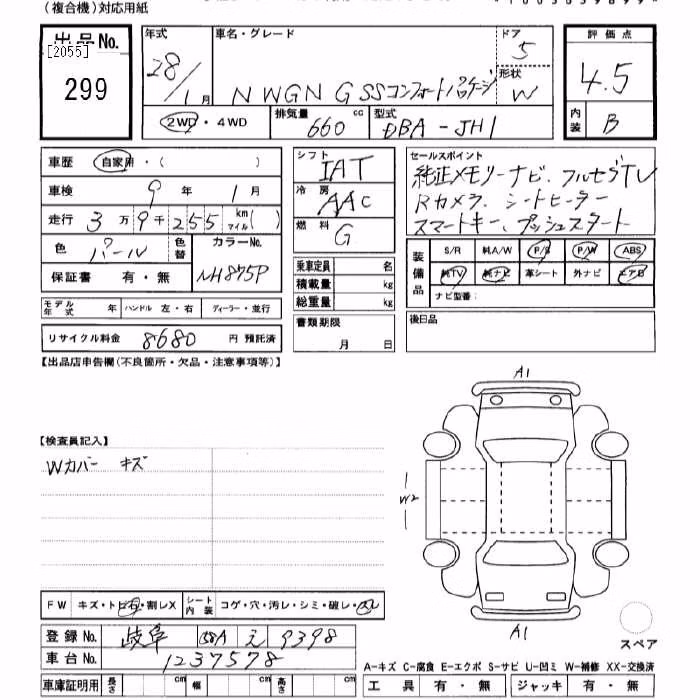 (複合機)対応用紙
出品No.
[2055]
299
年式 28/1月
車名・グレード
NWGN G SSコンフォートパッケージ
ドア 5
形状 W
2WD・4WD
排気量 660 cc
型式 DBA-JH1
評価点
4.5
内装 B
車歴 自家用・( )
車検 9年 1月
走行 3万9千255 km マイル( )
色 パール 色替 カラーNo. NH875P
保証書 有・無
モデル年式 年 ハンドル 左・右 ディーラー・並行
リサイクル料金 8680円 預託済
シフト IAT
冷房 AAC
燃料 G
乗車定員 名
積載量 kg
総重量 kg
書類期限 月 日
セールスポイント
純正メモリーナビ、フルセグTV
Rカメラ、シートヒーター
スマートキー、プッシュスタート
装備品 S/R 純A/W P/S P/W ABS
純TV 純ナビ 革シート 外ナビ エアB
ナビ型番:
後日品
【出品店申告欄(不良箇所・欠品・注意事項等)】
【検査員記入】
Wカバー キズ
A1
W2
A1
スペア
FW キズ・トビ石・割レX シート内装 コゲ・穴・汚レ・シミ・破レ・スレ
登録No. 岐阜 え 9398
車台No. 1237578
車庫証明用 長さ cm 幅 cm 高さ cm
A-キズ C-腐食 E-エクボ S-サビ U-凹ミ W-補修 XX-交換済
工具 有・無 ジャッキ 有・無